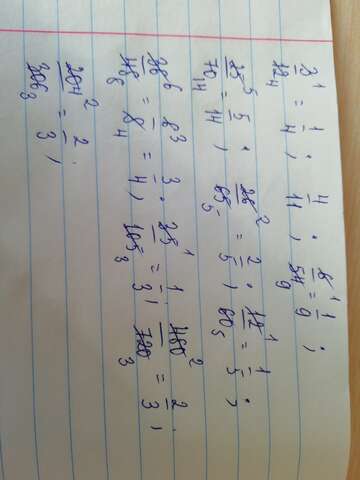 3¹/12₄ = 1/4; 4/11; 6¹/54₉ = 1/9;
25⁵/70₁₄ = 5/14; 26²/65₅ = 2/5; 12¹/60₅ = 1/5;
36⁶/48₈ = 6³/8₄ = 3/4; 35¹/105₃ = 1/3; 480²/720₃ = 2/3;
204²/306₃ = 2/3;